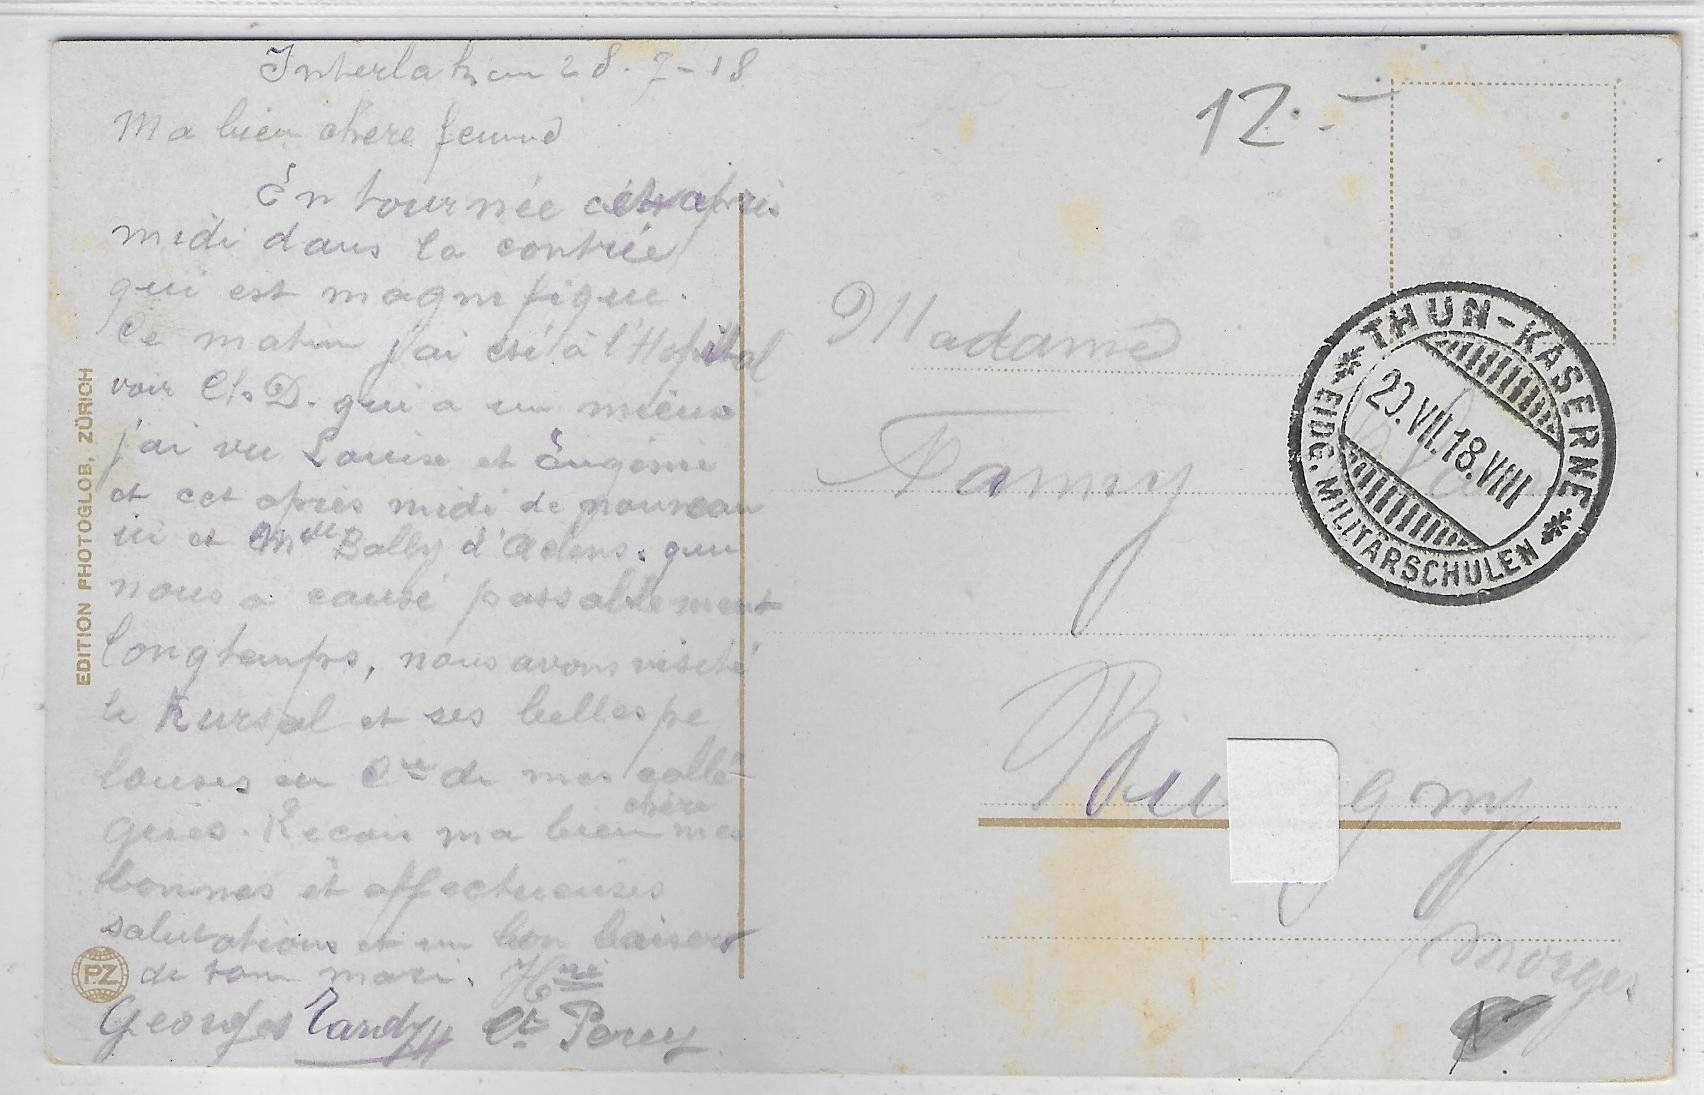 Interlaken 28-7-18
Ma bien chère femme
En tournée cet après
midi dans la contrée
qui est magnifique.
Ce matin j'ai été à l'Hopital
voir Ch. D. qui a un mieux
j'ai vu Louise et Eugénie
et cet après midi de nouveau
ici et Mdlle Bally d'Aclens. qui
nous a causé passablement
longtemps, nous avons visité
le Kursal et ses belles pe
louses en Cie de mes collè
gues. Recois ma bien chère mes
bonnes et affectueuses
salutations et un bon baisers
de ton mari. Hri
Georges Tardy Ct Perey
EDITION PHOTOGLOB, ZÜRICH
PZ
12.-
THUN-KASERNE
EIDG. MILITÄRSCHULEN
29.VII.18.VIII
Madame
Fanny
Bu gny
Morges